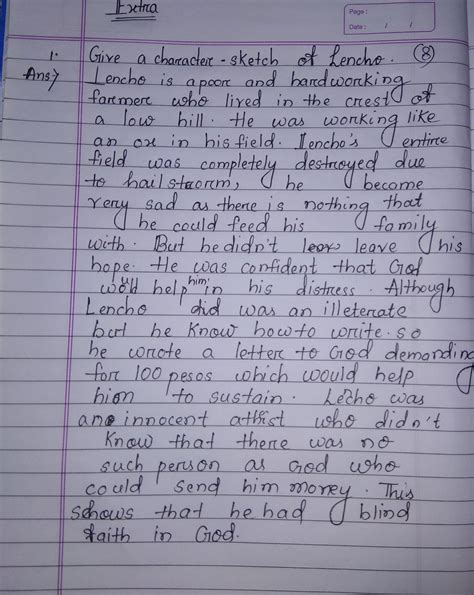 Extra
Page :
Date : / /
1. Give a character-sketch of Lencho. (8)
Ans:) Lencho is a poor and hardworking
farmer who lived in the crest of
a low hill. He was working like
an ox in his field. Lencho's entire
field was completely destroyed due
to hailstrorm, he became
very sad as there is nothing that
he could feed his family
with. But he didn't leave his
hope. He was confident that God
would help him in his distress. Although
Lencho did was an illeterate
but he know how to write. so
he wrote a letter to God demanding
for 100 pesos which would help
him to sustain. Lecho was
an innocent who didn't
know that there was no
such person as God who
could send him money. This
schows that he had blind
faith in God.